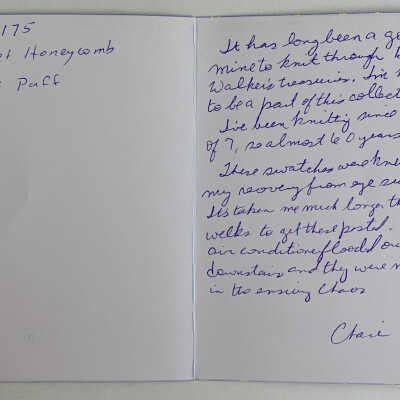 175
Honeycomb
Puff
It has long been a go
mine to knit through
Walker's treasuries. I've
to be a part of this collect
I've been knitting since
of 7, so almost 60 years
These swatches were kn
my recovery from eye su
It's taken me much longer th
weeks to get these posted.
air conditione flooded ou
downstairs and they were
in the ensuing chaos